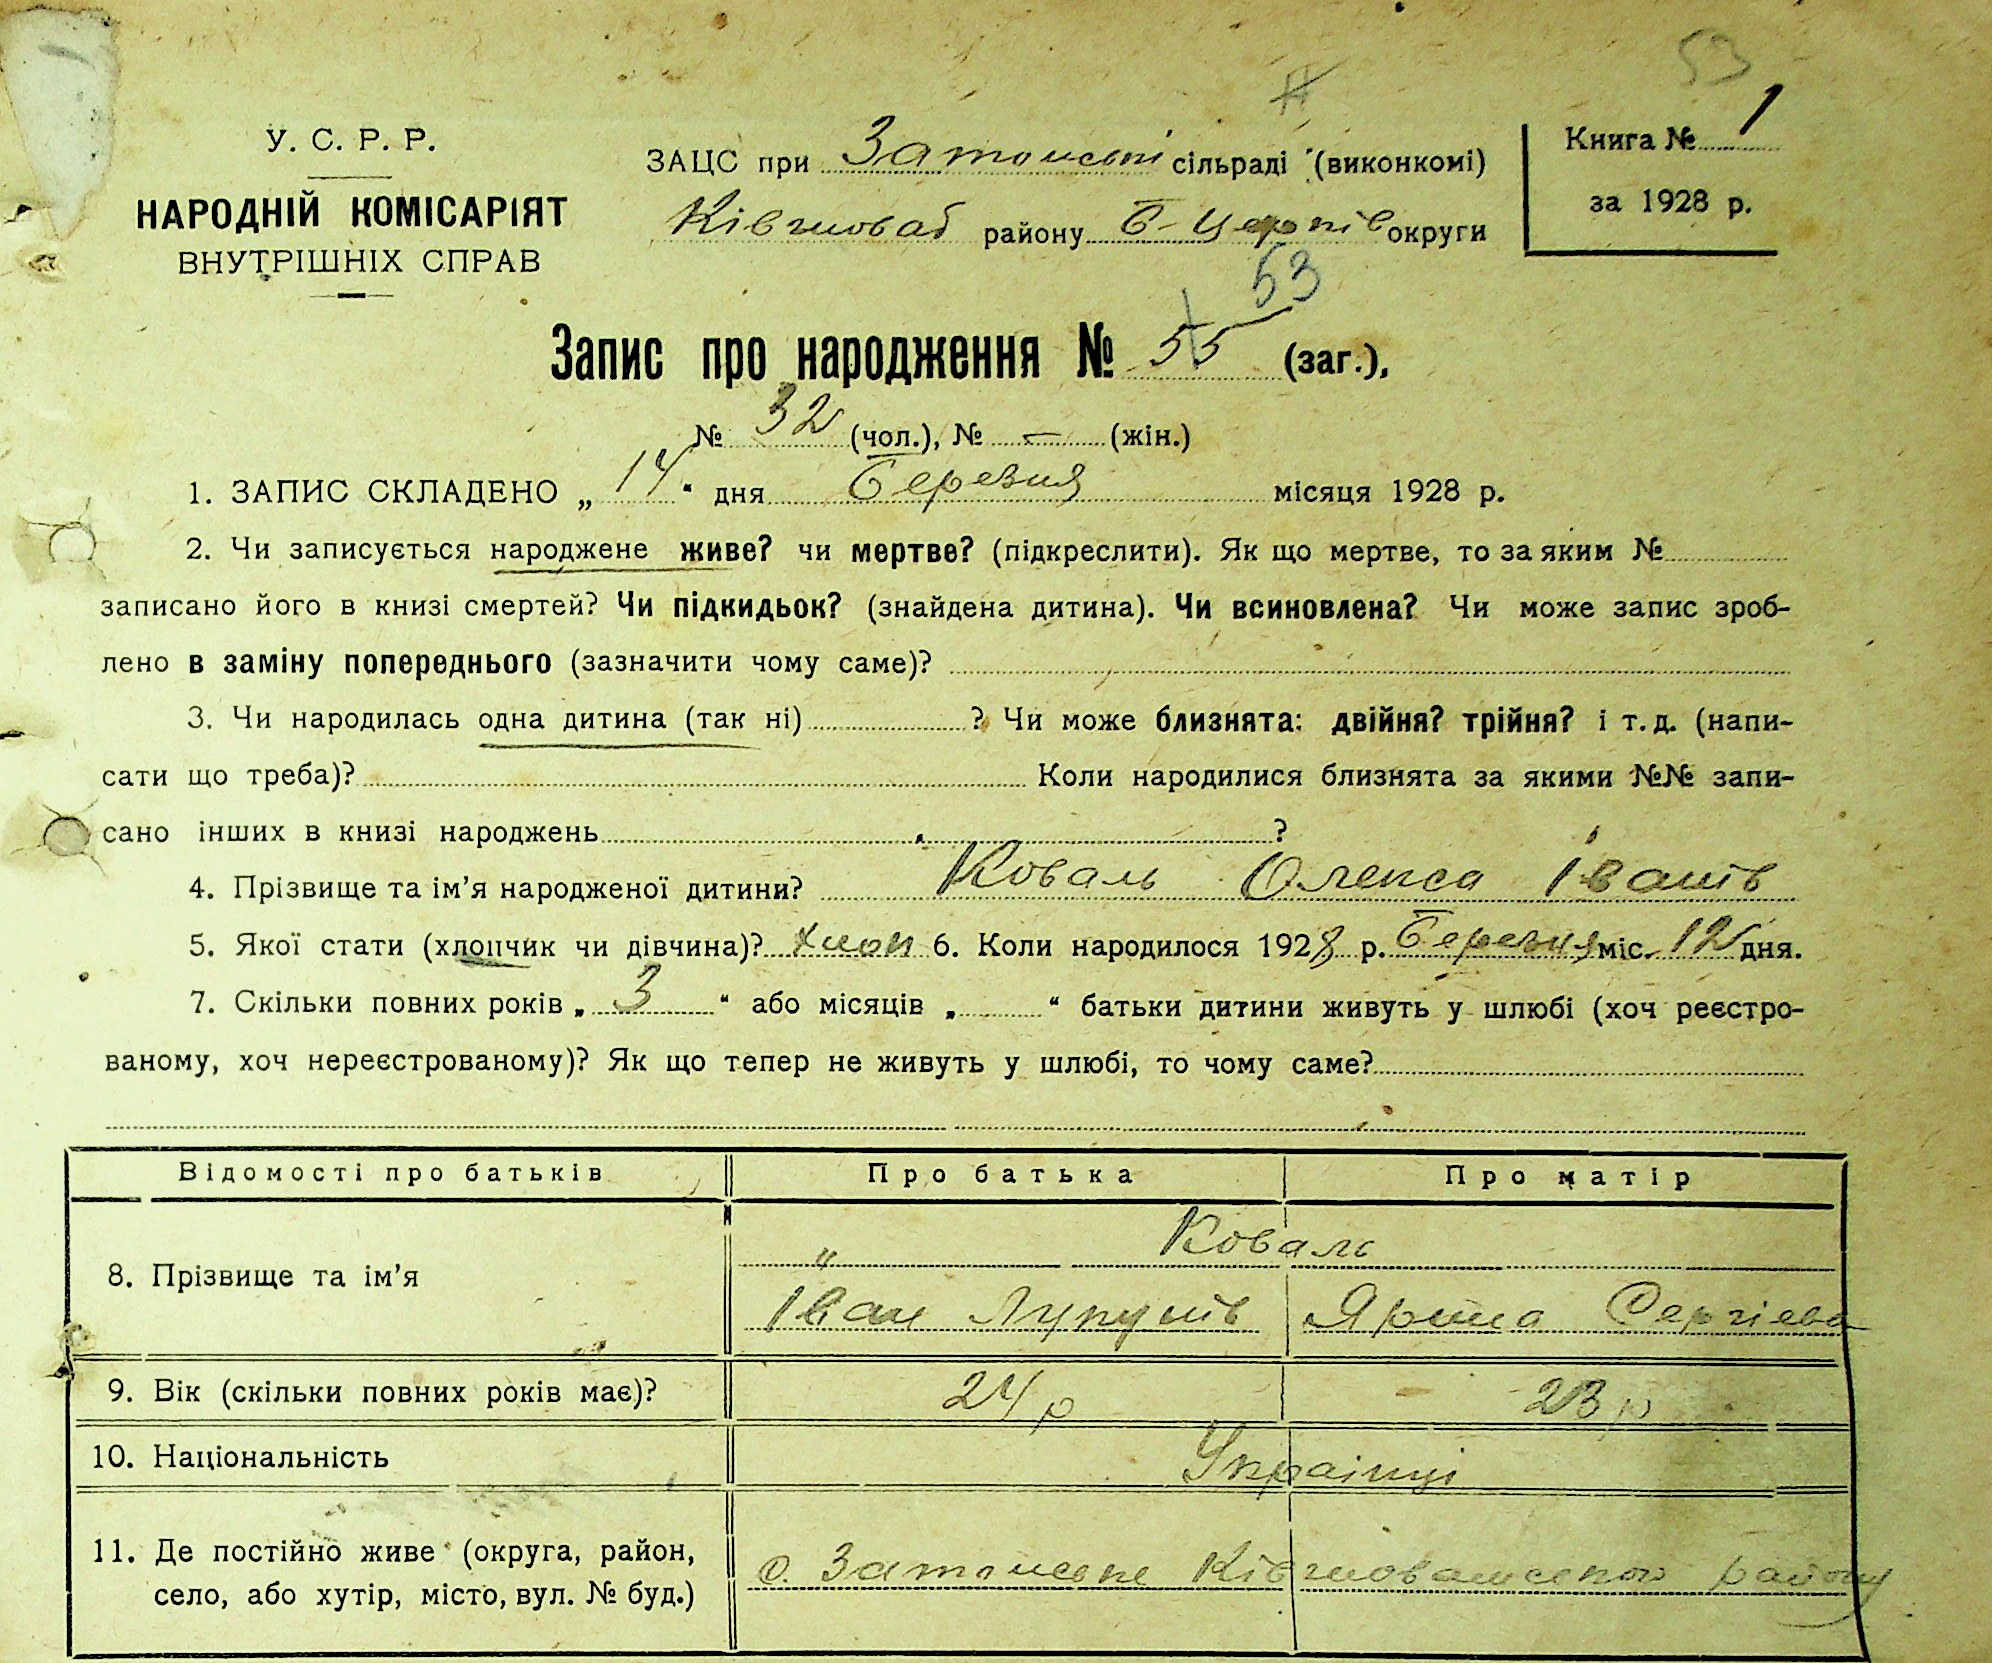 53
У. С. Р. Р.
НАРОДНІЙ КОМІСАРІЯТ
ВНУТРІШНІХ СПРАВ
ЗАЦС при Затонській сільраді (виконкомі)
району Б-Церків округи
Книга № 1
за 1928 р.
53
Запис про народження № 55 (заг.),
№ 32 (чол.), № — (жін.)
1. ЗАПИС СКЛАДЕНО „ 14 “ дня Березня місяця 1928 р.
2. Чи записується народжене живе? чи мертве? (підкреслити). Як що мертве, то за яким №
записано його в книзі смертей? Чи підкидьок? (знайдена дитина). Чи всиновлена? Чи може запис зроб-
лено в заміну попереднього (зазначити чому саме)?
3. Чи народилась одна дитина (так ні) ? Чи може близнята: двійня? трійня? і т. д. (напи-
сати що треба)? Коли народилися близнята за якими №№ запи-
сано інших в книзі народжень ?
4. Прізвище та ім’я народженої дитини? Коваль Олекса Іванів
5. Якої стати (хлопчик чи дівчина)? хлоп 6. Коли народилося 1928 р. Березня міс. 12 дня.
7. Скільки повних років „ 3 “ або місяців „ “ батьки дитини живуть у шлюбі (хоч реєстро-
ваному, хоч нереєстрованому)? Як що тепер не живуть у шлюбі, то чому саме?
Відомості про батьків Про батька Про матір
8. Прізвище та ім’я
" Коваль
Іван Лупулів Ярина Сергієва
9. Вік (скільки повних років має)? 24 р 23 р
10. Національність Українці
11. Де постійно живе (округа, район,
село, або хутір, місто, вул. № буд.)
с. Затонське району